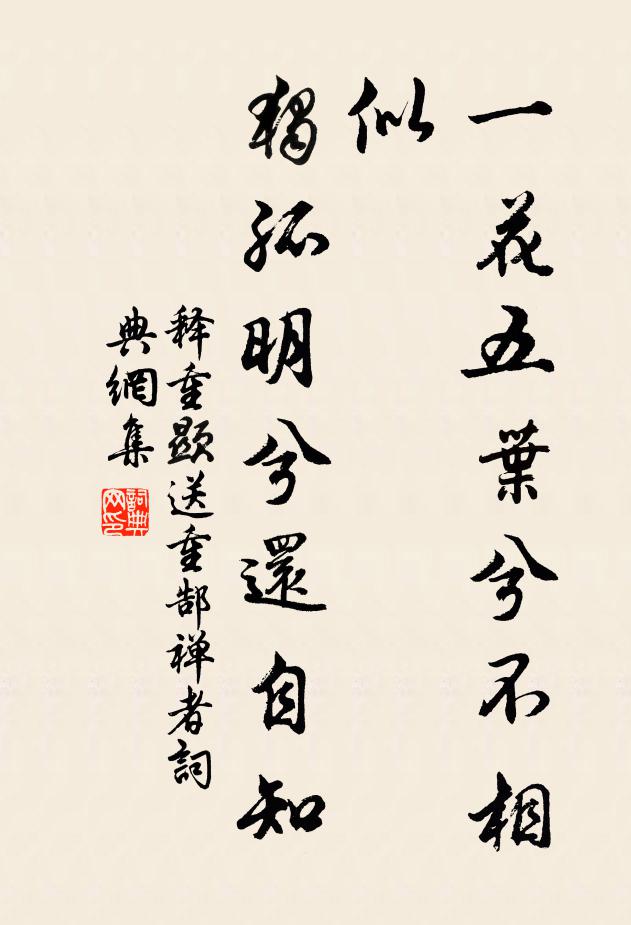 一花五葉兮不相
似
獨孤明兮還自知
释重顯送重郜禅者詞
典網集
詞典网印